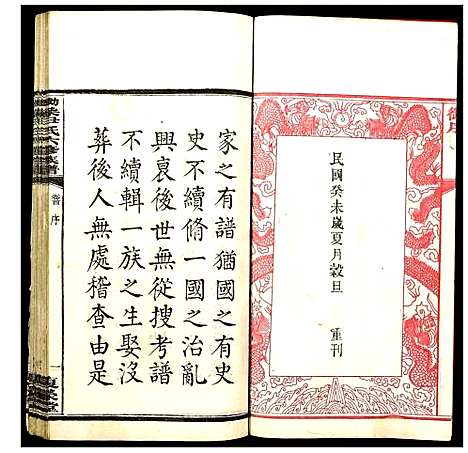 民國癸未歲夏月穀旦
重刊
家之有譜猶國之有史
史不續脩一國之治亂
興衰後世無從搜考譜
不續輯一族之生娶沒
葬後人無處稽查由是
卷首 序